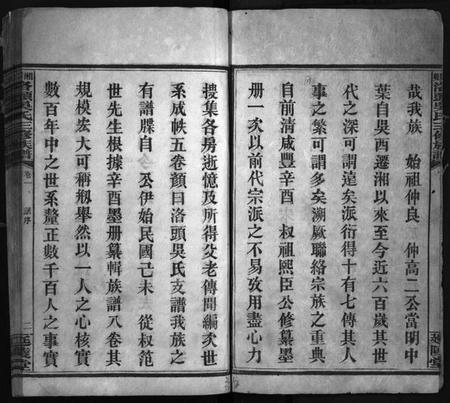 哉我族 始祖仲良 仲高二公當明中
葉自吳西遷湘以來至今近六百歲其世
代之深可謂遠矣派衍得十有七傳其人
事之繁可謂多矣溯厥聯絡宗族之重典
自前清咸豐辛酉 叔祖熙臣公修纂墨
册一次以前代宗派之不易攷用盡心力
搜集各房逝憶及所得父老傳聞編次世
系成帙五卷顏曰洛頭吳氏支譜我族之
有譜牒自 公伊始民國己未 從叔范
世先生根據辛酉墨册纂輯族譜八卷其
規模宏大可稱剏舉然以一人之心核實
數百年中之世系釐正數千百人之事實